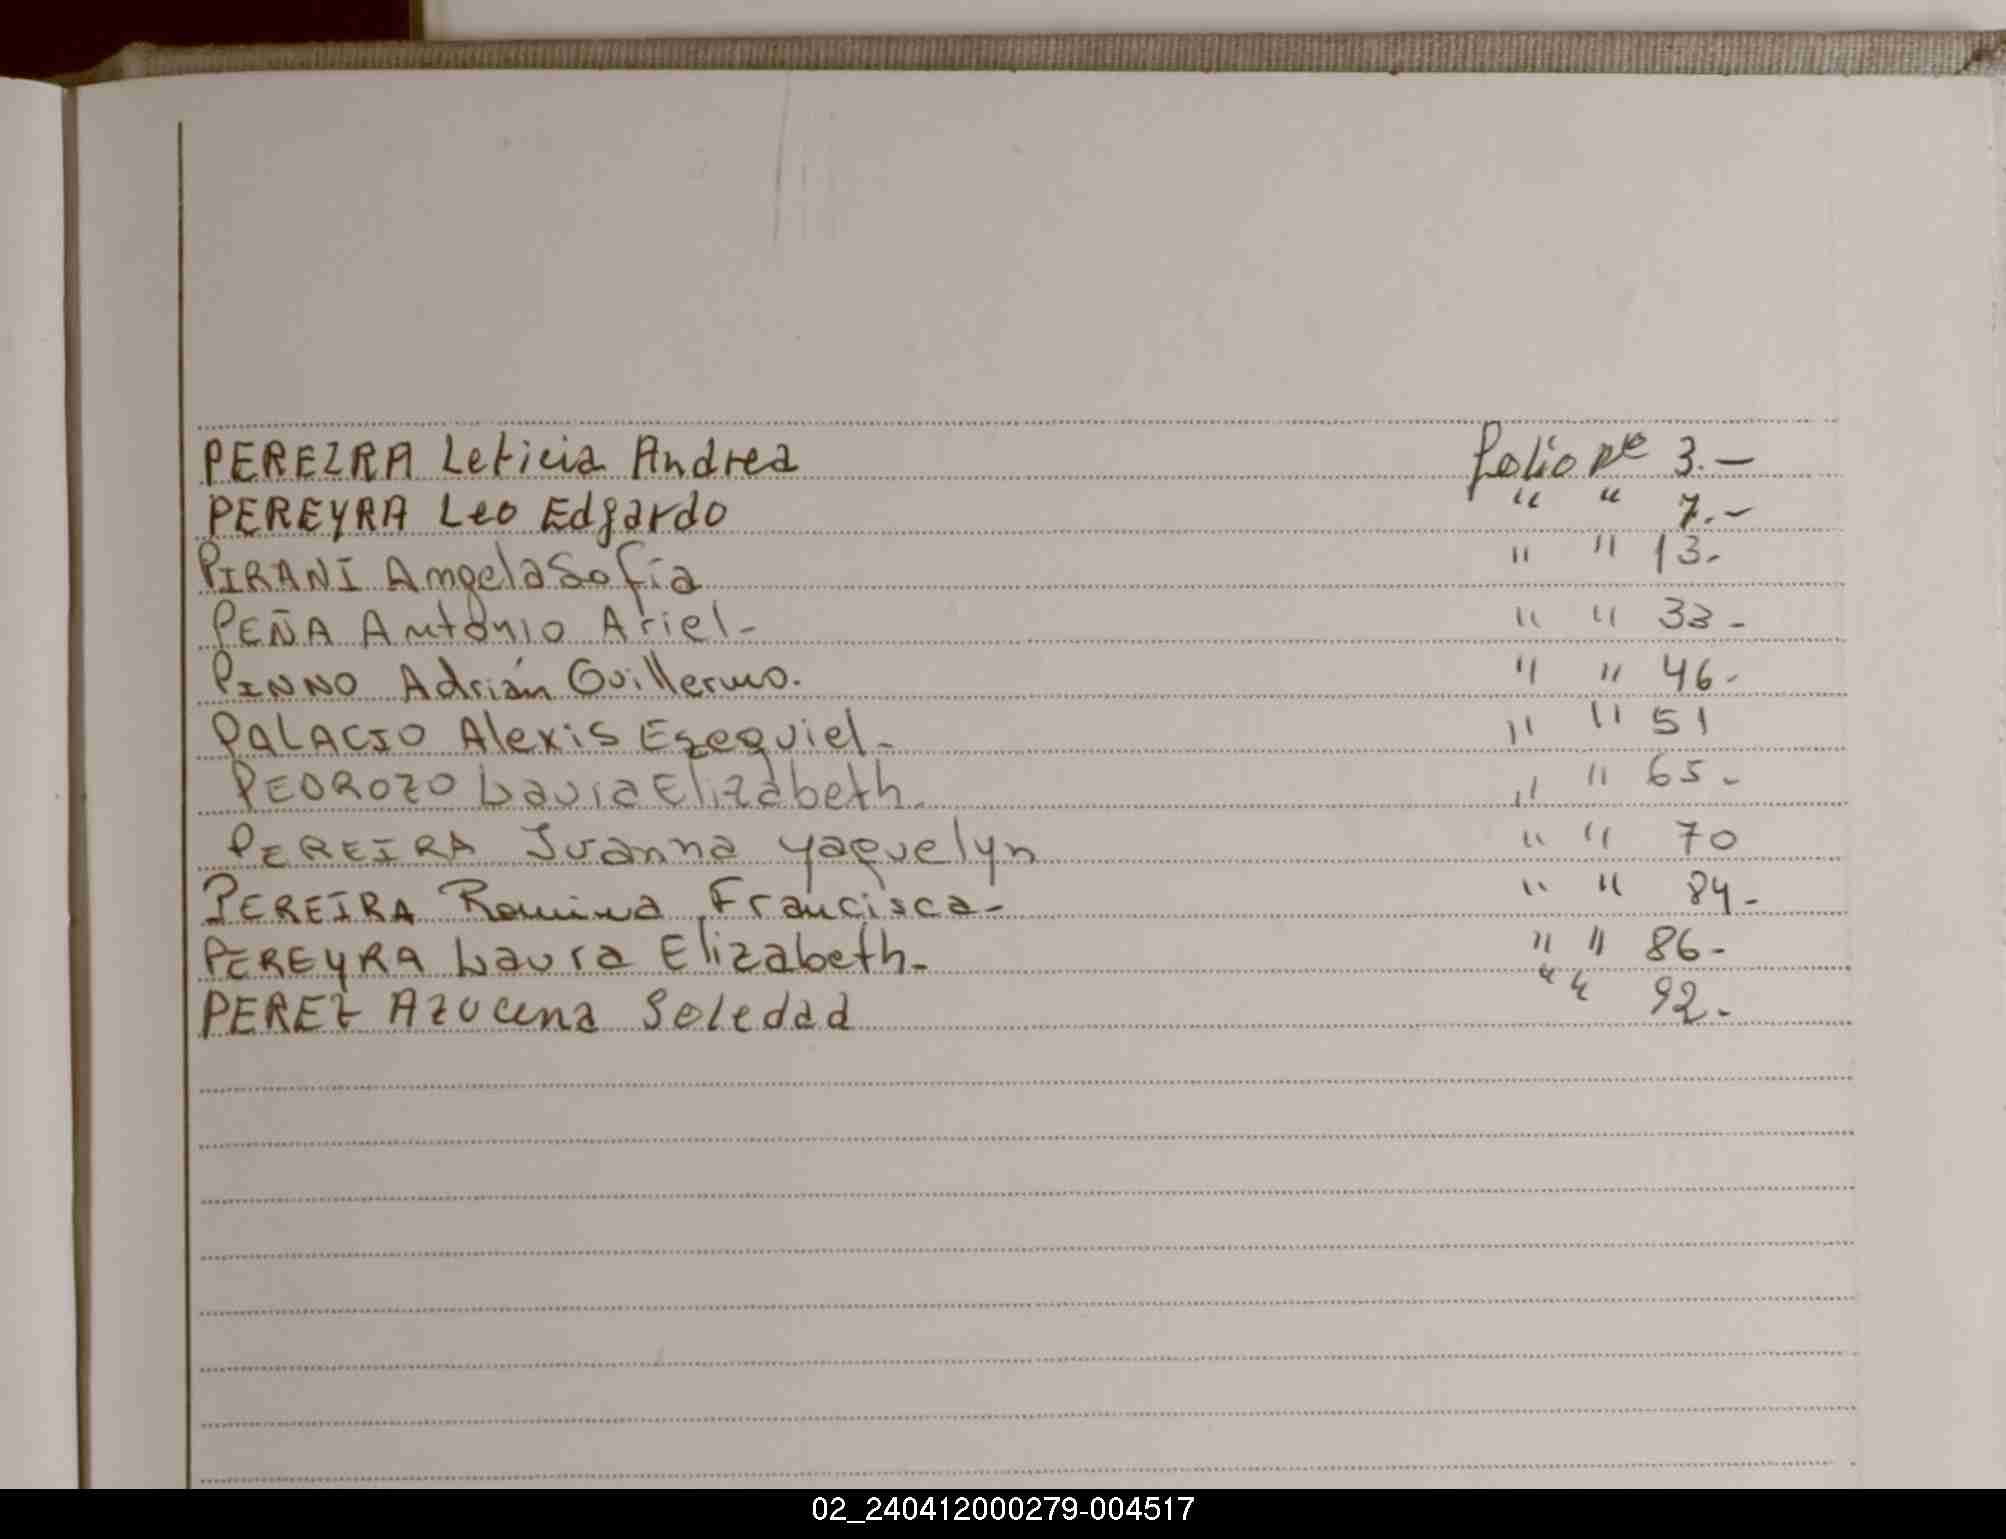 PEREIRA Leticia Andrea folio nº 3.-
PEREYRA Leo Edgardo " " 7.-
PIRANI Angela Sofia " " 13-
PEÑA Antonio Ariel- " " 33-
PINNO Adrián Guillermo. " " 46-
PALACIO Alexis Ezequiel- " " 51
PEDROZO Laura Elizabeth. " " 65-
PEREIRA Ivanna Yaquelyn " " 70
PEREIRA Romina Francisca- " " 84-
PEREYRA Laura Elizabeth- " " 86-
PEREZ Azucena Soledad " " 92-
02_240412000279-004517